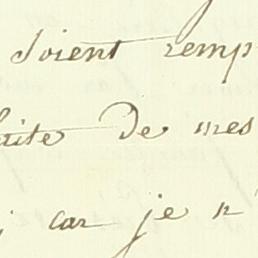 soient remp
uite de mes
car je n'